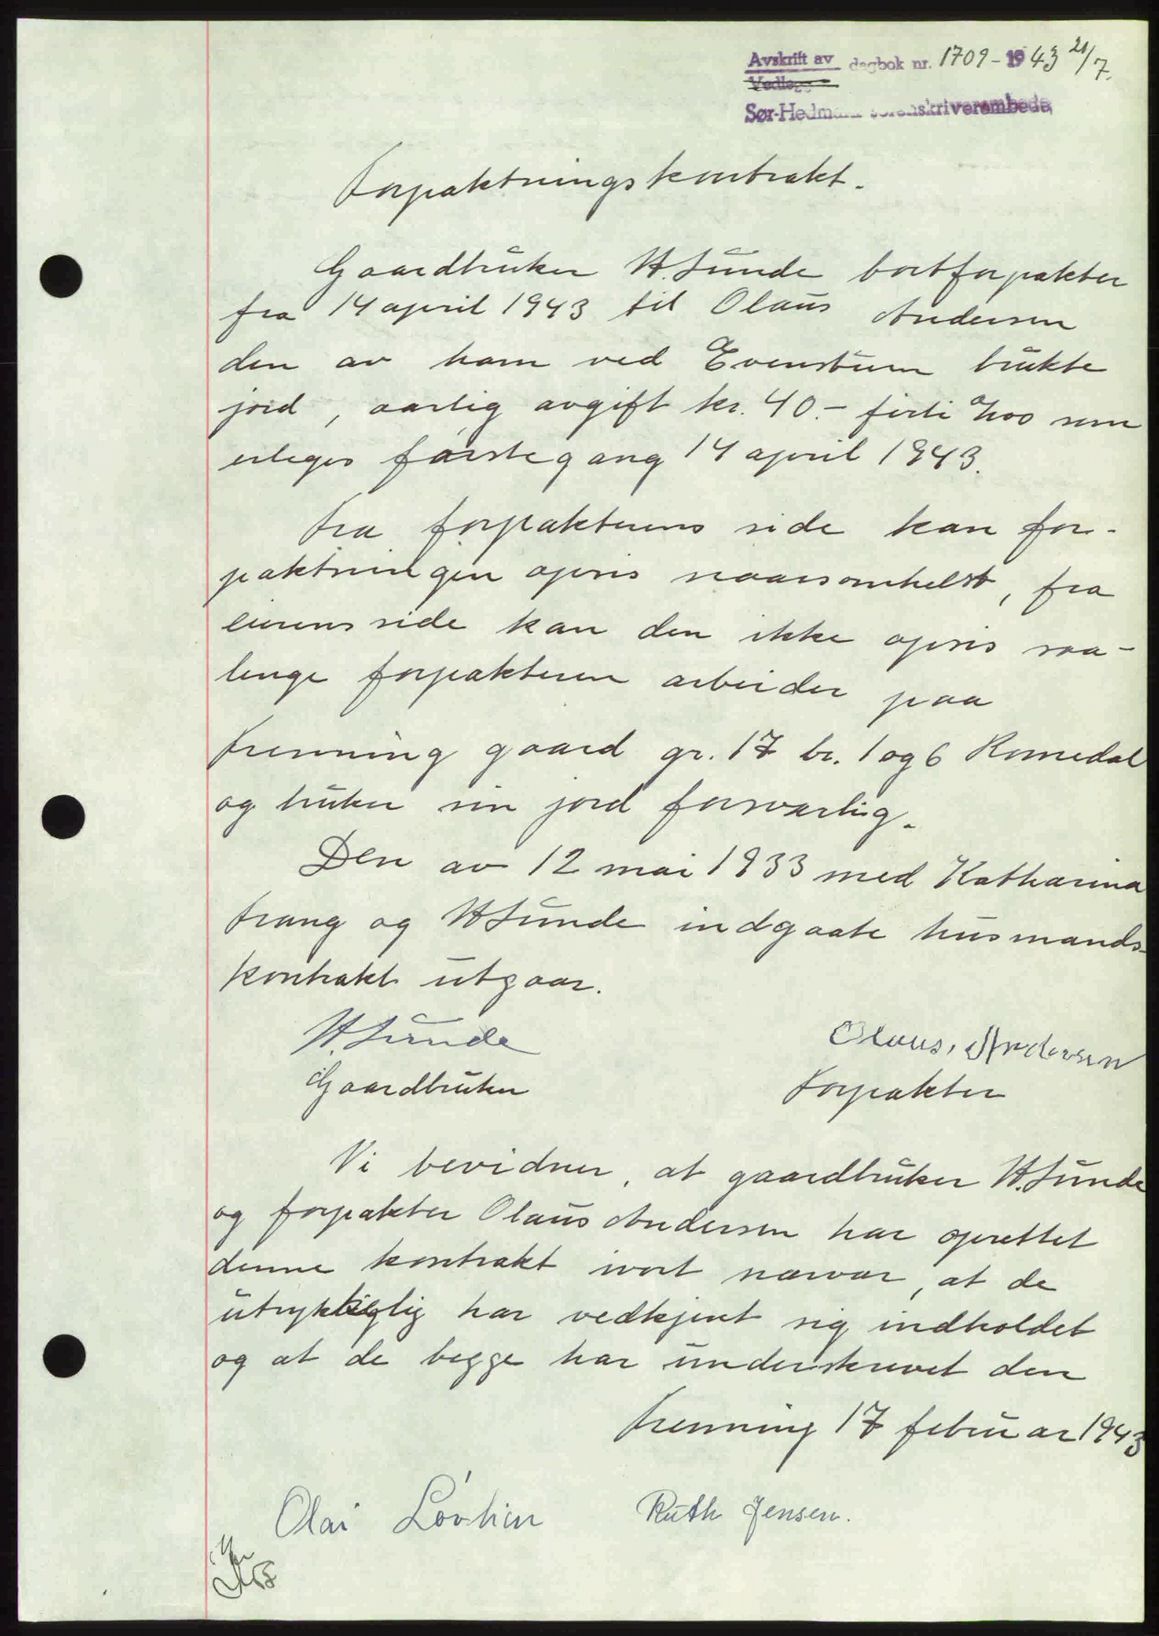 Avskrift av dagbok nr. 1709-1943 21/7.
Vedlegg
Sør-Hedmark sorenskriverembede
Forpaktningskontrakt.
Gaardbruker H. Sunde bortforpakter
fra 14 april 1943 til Olaus Andersen
den av ham ved Evenstuen brukte
jord, aarlig avgift kr. 40.- førti 0/100 som
erleges første gang 14 april 1943.
Fra forpakterens side kan for-
paktningen opsis naarsomhelst, fra
eierens side kan den ikke opsis saa-
lenge forpakteren arbeider paa
Frenning gaard gr. 17 br. 1 og 6 Romedal
og bruker sin jord forsvarlig.
Den av 12 mai 1933 med Katharina
Frang og H Sunde indgaate husmands-
kontrakt utgaar.
H. Sunde Olaus, Andersen
Gaardbruker Forpakter
Vi bevidner, at gaardbruker H. Sunde
og forpakter Olaus Andersen har oprettet
denne kontrakt ivort nærvær, at de
utrykkliglig har vedkjent sig indholdet
og at de begge har underskrevet den
Frenning 17 februar 1943
Olai Løvlien Ruth Jensen.